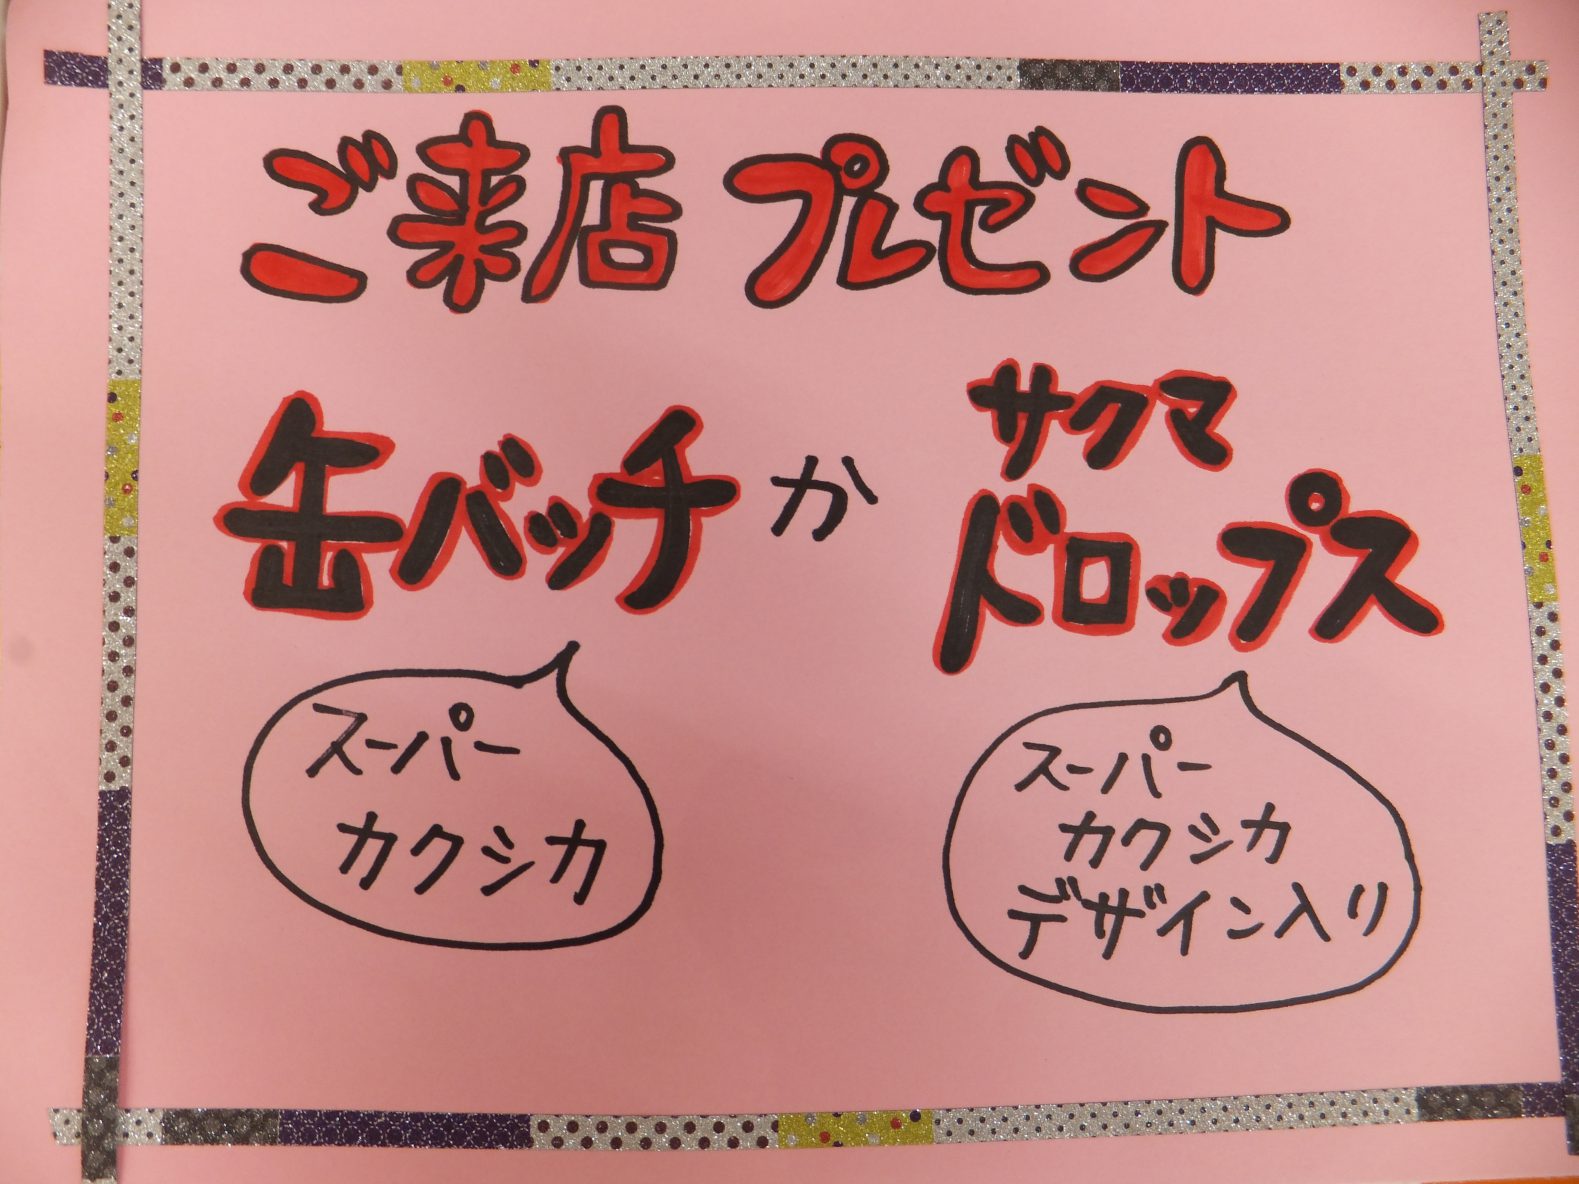 ご来店 プレゼント
缶バッチ か サクマ
ドロップス
スーパー
カクシカ
スーパー
カクシカ
デザイン入り